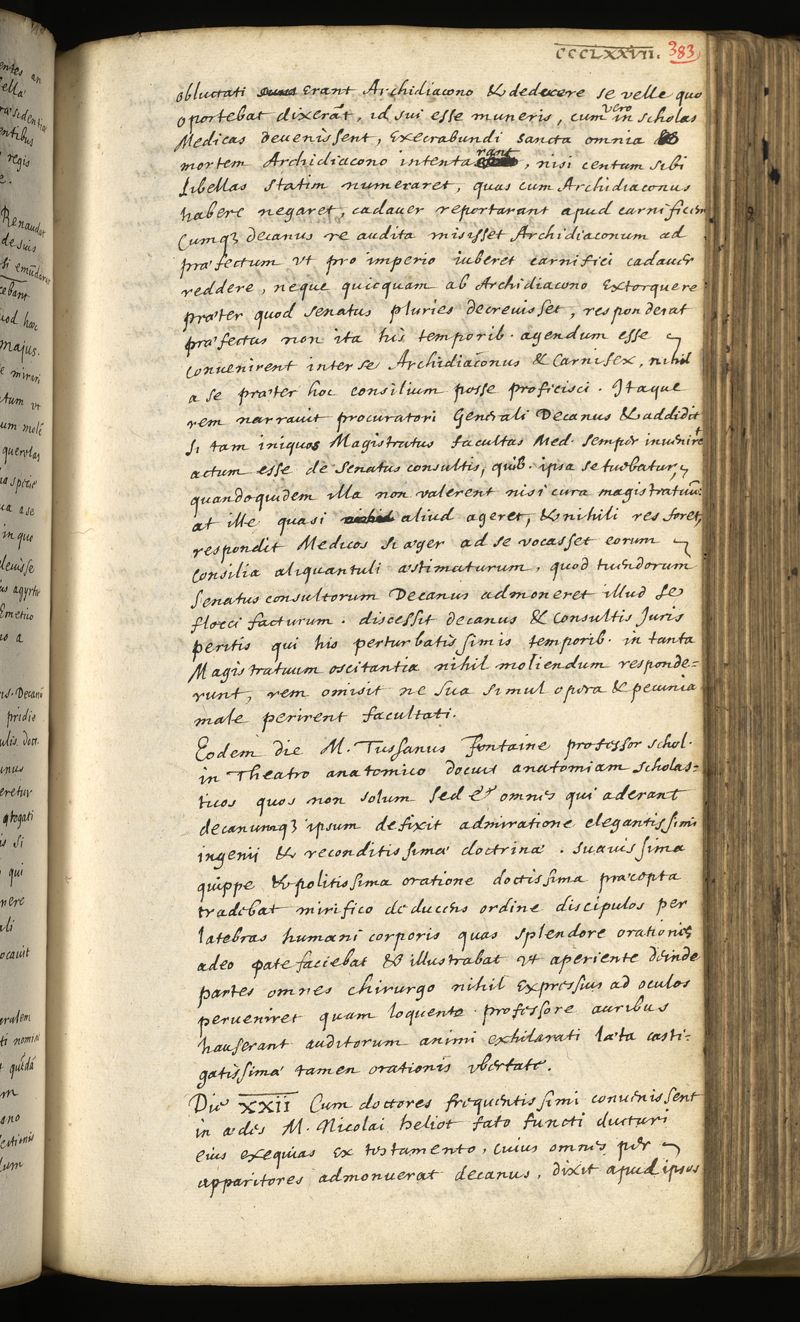 CCCLXXVII. 383
obluctati erant Archidiacono & dedecere se velle quo
oportebat dixerāt, id sui esse muneris, cum vero in scholas
Medicas devenissent, execrabundi sancta omnia &
mortem Archidiacono intentarant, nisi centum sibi
libellas statim numeraret, quas cum Archidiaconus
habere negaret, cadauer reportarant apud carnificem
Cumq3 decanus re audita misisset Archidiaconum ad
præfectum vt pro imperio iuberet carnifici cadauer
reddere, neque quicquam ab Archidiacono extorquere
præter quod senatus pluries decreuisset, responderat
præfectus non ita his temporib. agendum esse
convenirent inter se Archidiaconus & Carnifex, nihil
a se præter hoc consilium posse proficisci. Itaque
rem narrauit procuratori Generali Decanus & addidit
si tam iniquos Magistratus facultas Med. semper inuenirēt
actum esse de senatus consultis, quib. ipsa se tuebatur,
quandoquidem illa non valerent nisi cura magistratuū:
at ille quasi aliud ageret, & nihili res foret,
respondit Medicos si æger ad se vocasset eorum
consilia aliquantuli æstimaturum, quod tuendorum
senatus consultorum Decanus admoneret illud se
flocci facturum. discessit decanus & consultis Juris
peritis qui his perturbatissimis temporib. in tanta
Magistratuum oscitantia nihil moliendum responde=
runt, rem omisit ne sua simul opera & pecunia
male perirent facultati.
Eodem die M. Tussanus Fontaine professor schol.
in Theatro anatomico docuit anatomiam scholas=
ticos quos non solum sed & omnes qui aderant
decanumq3 ipsum defixit admiratione elegantissimi
ingenii & reconditissimæ doctrinæ. suauissima
quippe & politissima oratione doctissima præcepta
tradebat mirifico deducens ordine discipulos per
latebras humani corporis quas splendore orationis
adeo patefaciebat & illustrabat vt aperiente deinde
partes omnes chirurgo nihil expressius ad oculos
perueniret quam loquente professore auribus
hauserant auditorum animi exhilarati læta casti=
gatissimæ tamen orationis vbertate.
Die XXII Cum doctores frequentissimi convenissent
in ædes M. Nicolai heliot fato functi ducturi
eius exequias ex testamento, cuius omnes per
apparitores admonuerat decanus, dixit apud ipsos